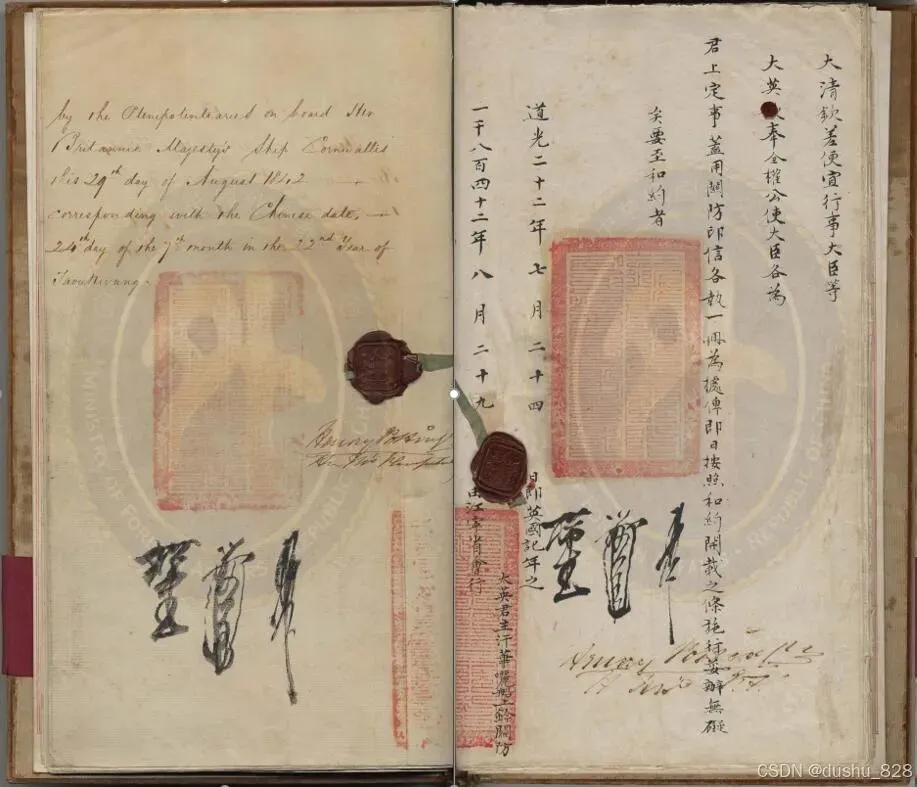 by the Plenipotentiaries on board Her
Britannic Majesty's Ship Cornwallis
this 29th day of August 1842 —
corresponding with the Chinese date, —
24th day of the 7th month in the 22nd Year of
Taoukwang.
Henry Potting
大清欽差便宜行事大臣等
大英奉全權公使大臣各為
君上定事蓋用關防印信各執一冊為據俾即日按照和約開載之條施行妥辦無礙
矣要至和約者
道光二十二年七月二十四日即英國記年之
一千八百四十二年八月二十九由江寧省會行
大英君主汗華船上鈐關防
Henry Pottinger
MINISTRY OF FOREI
REPUBLIC OF
CSDN @dushu_828